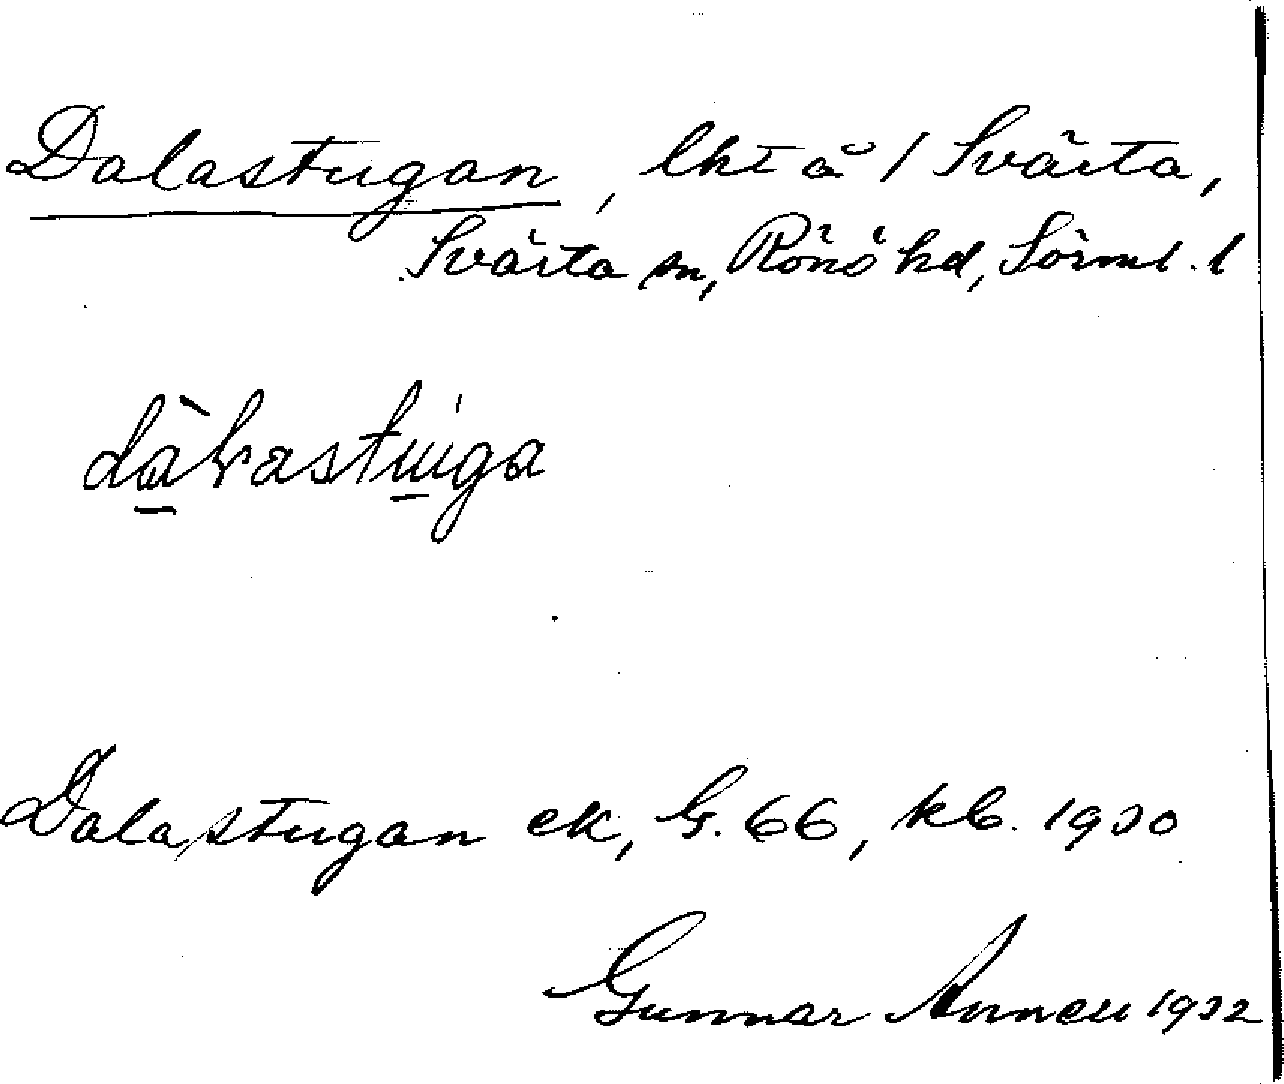 Dalastugan, lht å 1 Svärta,
Svärta sn, Rönö hd, Sörml. l
dàlastuga
Dalastugan ek, G. 66, kb. 1930
Gunnar 1932